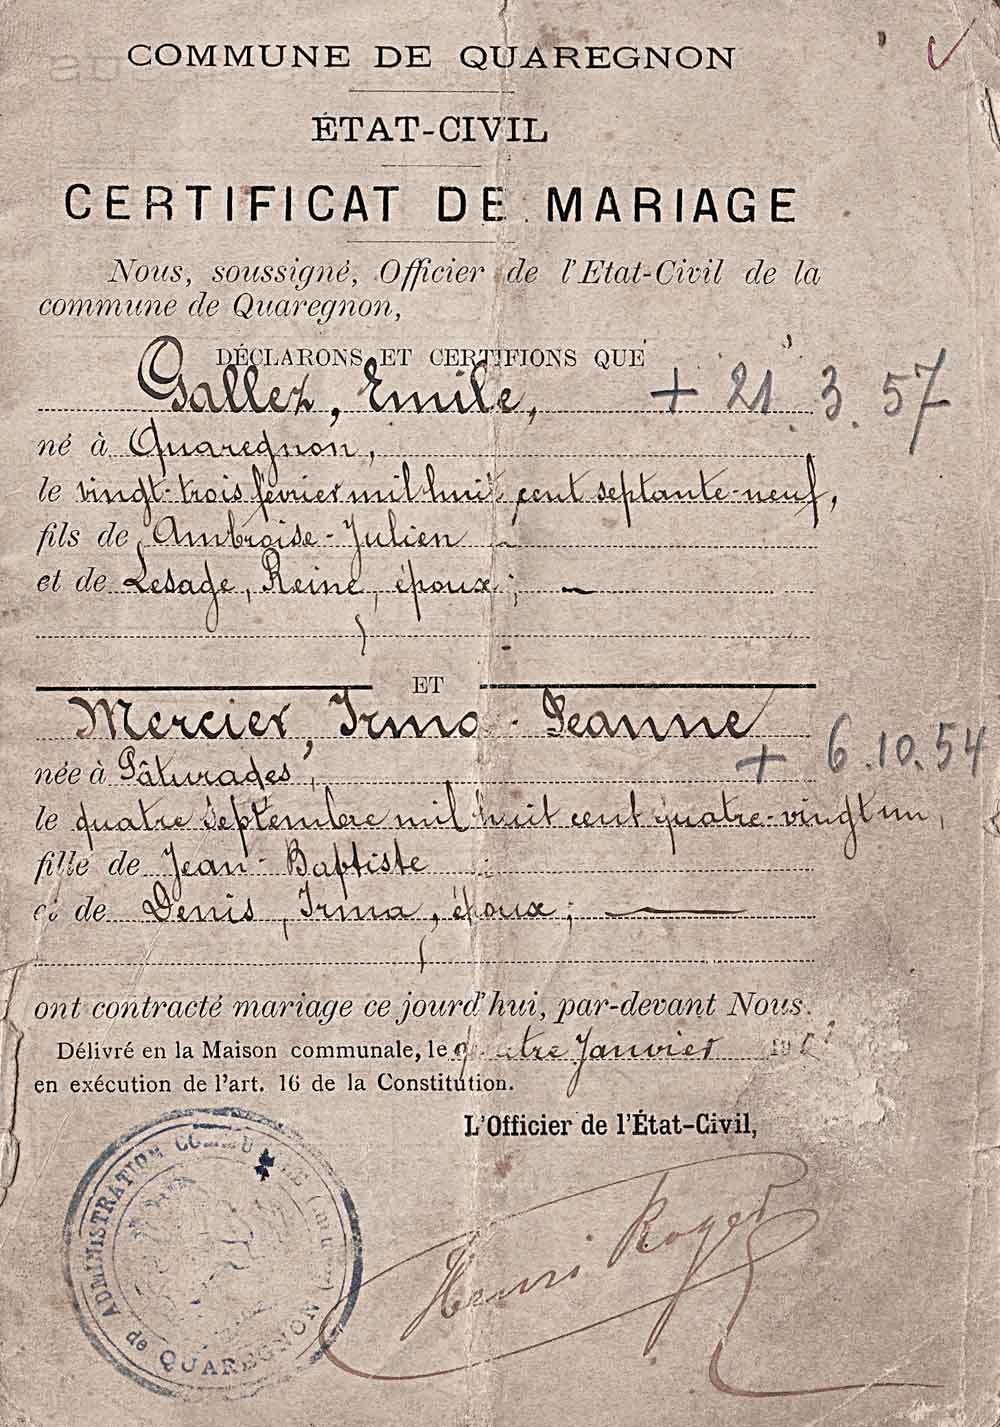 COMMUNE DE QUAREGNON
ÉTAT-CIVIL
CERTIFICAT DE MARIAGE
Nous, soussigné, Officier de l'Etat-Civil de la
commune de Quaregnon,
DÉCLARONS ET CERTIFIONS QUE
Gallez, Emile, + 21.3.57
né à Quaregnon,
le vingt-trois février mil huit cent septante-neuf,
fils de Ambroise-Julien
et de Lesage, Reine, époux;
ET
Mercier, Irma-Jeanne
née à Pâturages, + 6.10.54
le quatre septembre mil huit cent quatre-vingt un,
fille de Jean-Baptiste
et de Denis, Irma, époux;
ont contracté mariage ce jourd'hui, par-devant Nous.
Délivré en la Maison communale, le quatre Janvier
en exécution de l'art. 16 de la Constitution.
L'Officier de l'État-Civil,
Henri Roger
ADMINISTRATION COMMUNALE
de QUAREGNON